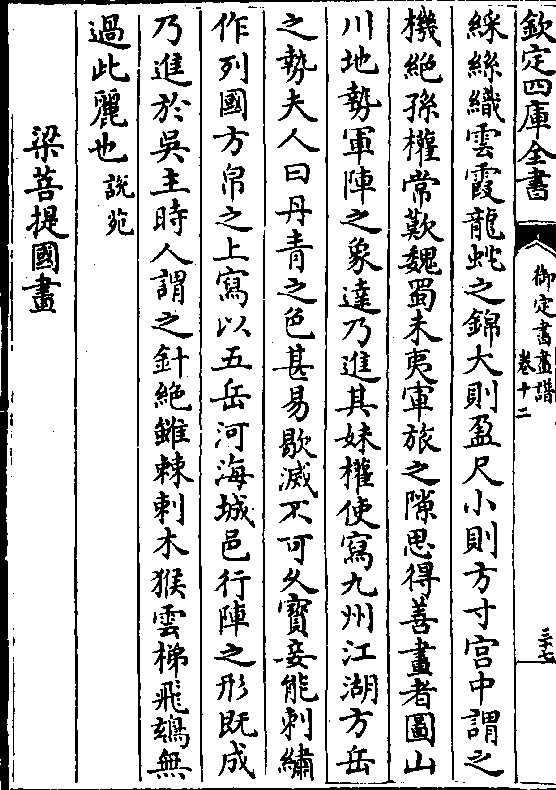 欽定四庫全書
御定書畫譜
卷十二
三十七
綵絲織雲霞龍虵之錦大則盈尺小則方寸宫中謂之
機絶孫權常歎魏蜀未夷軍旅之隙思得善畫者圖山
川地勢軍陣之象達乃進其妹權使寫九州江湖方岳
之勢夫人曰丹青之色甚易歇滅不可久寳妾能刺繡
作列國方帛之上寫以五岳河海城邑行陣之形既成
乃進於吳主時人謂之針絶雖棘刺木猴雲梯飛鴳無
過此麗也說苑
梁菩提國畫